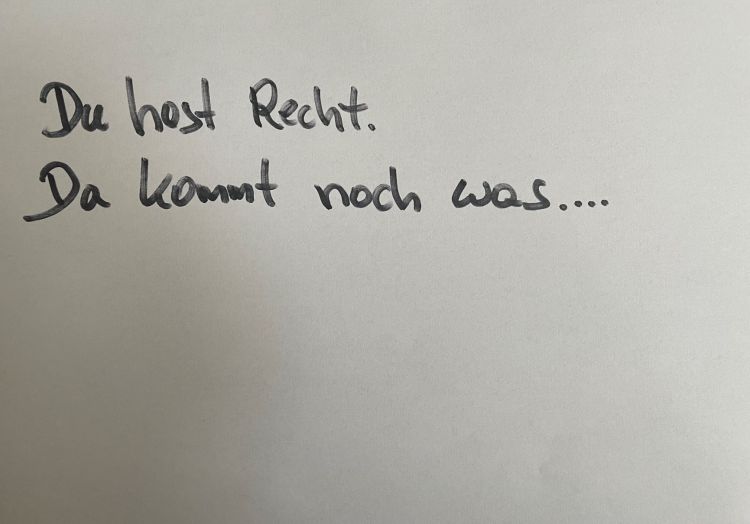 Du hast Recht.
Da kommt noch was....